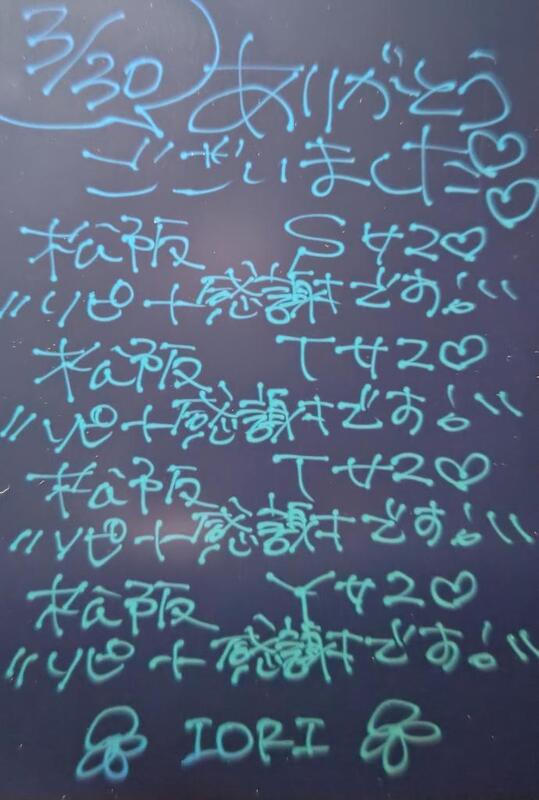 3/30 ありがとう
ございました♡♡
松阪 Sサン♡
"リピート感謝です!"
松阪 Tサン♡
"リピート感謝です!"
松阪 Tサン♡
"リピート感謝です!"
松阪 Yサン♡
"リピート感謝です!"
IORI